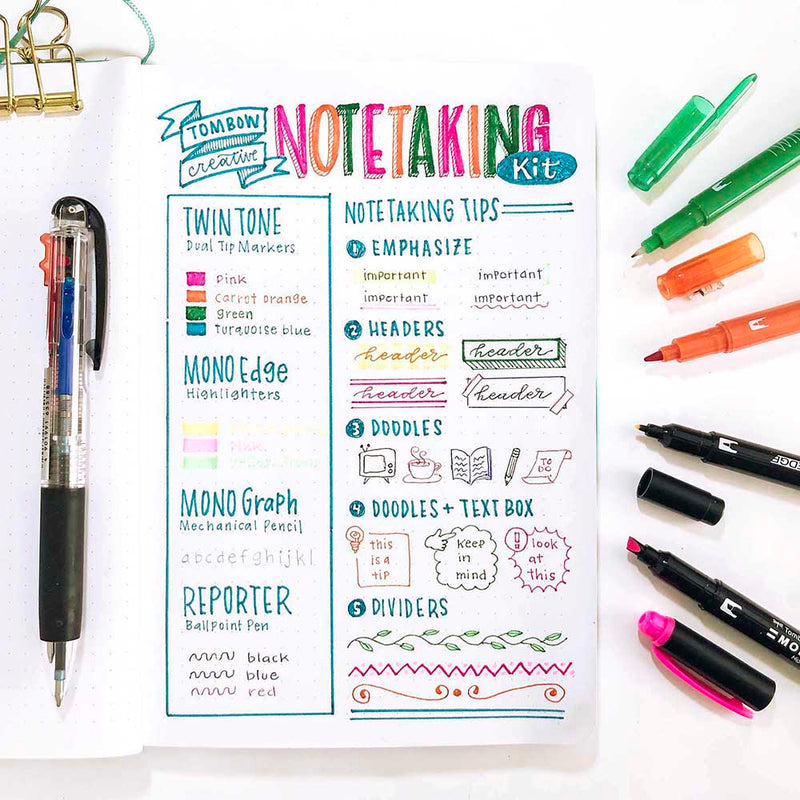 TOMBOW
creative
NOTETAKING
Kit
TWIN TONE
Dual Tip Markers
Pink
Carrot orange
green
Turquoise blue
MONO Edge
Highlighters
Pink
MONO Graph
Mechanical Pencil
abcdefghijkl
REPORTER
Ballpoint Pen
black
blue
red
NOTETAKING TIPS
1 EMPHASIZE
important important
important important
2 HEADERS
header header
header header
3 DOODLES
TO
DO
4 DOODLES + TEXT BOX
this
is a
tip
keep
in
mind
! look
at
this
5 DIVIDERS
EDGE